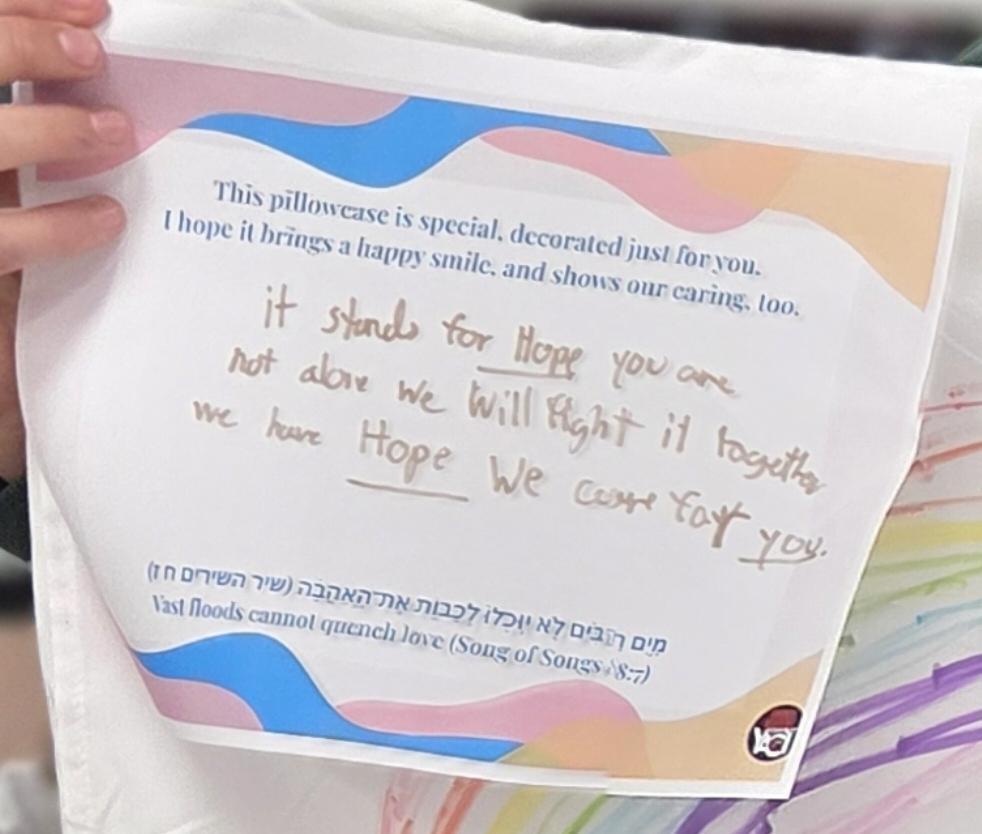 This pillowcase is special, decorated just for you.
I hope it brings a happy smile, and shows our caring, too.
it stands for Hope you are
not alone we Will Fight it together
we have Hope We care for you.
מַיִם רַבִּים לֹא יוּכְלוּ לְכַבּוֹת אֶת־הָאַהֲבָה (שיר השירים ח ז)
Vast floods cannot quench love (Song of Songs 8:7)